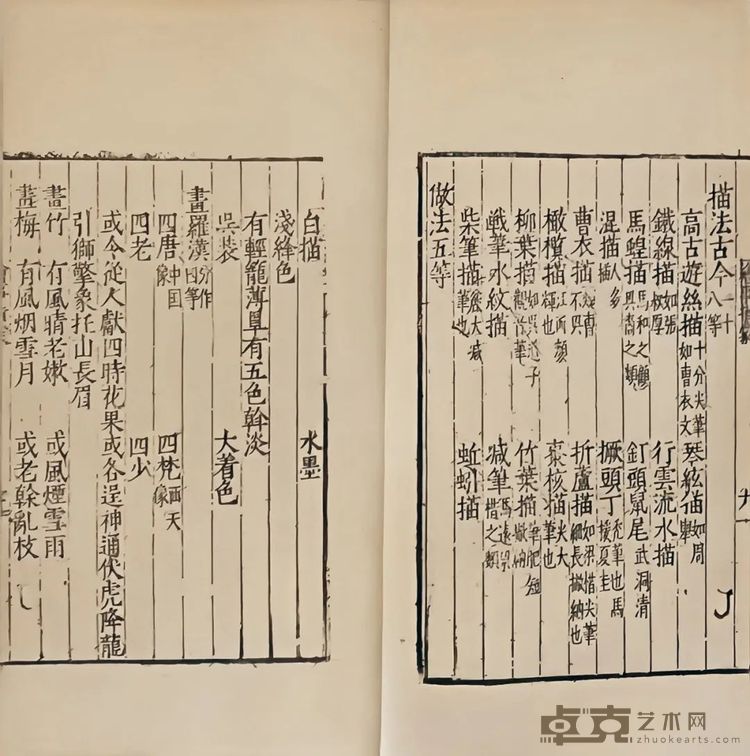 描法古今一十八等
高古遊丝描 十分尖筆如曹衣文 琴絃描 如周舉
鐵線描 如張叔厚 行雲流水描
馬蝗描 馬和之 之類 釘頭鼠尾 武洞清
混描 人多描 橛頭丁 禿筆也馬 夏圭
曹衣描 曹不興 折蘆描 如梁楷尖筆細長撇納也
橄欖描 江西顏輝也 棗核描 尖大筆也
柳葉描 如吳道子觀音筆 竹葉描 筆肥短撇納
戰筆水紋描 减筆 馬遠 梁楷之類
柴筆描 麄大减筆也 蚯蚓描
做法五等
白描 水墨
淺絳色
有輕籠薄罩有五色斡淡
吳装 大着色
畫羅漢 分作四等
四唐 中国像 四梵 西天像
四老 四少
或令從人獻四時花果或各逞神通伏虎降龍
引獅擎象托山長眉
畫竹 有風晴老嫩 或風煙雪雨
畫梅 有風烟雪月 或老幹亂枝
卓克艺术网
zhuokearts.com